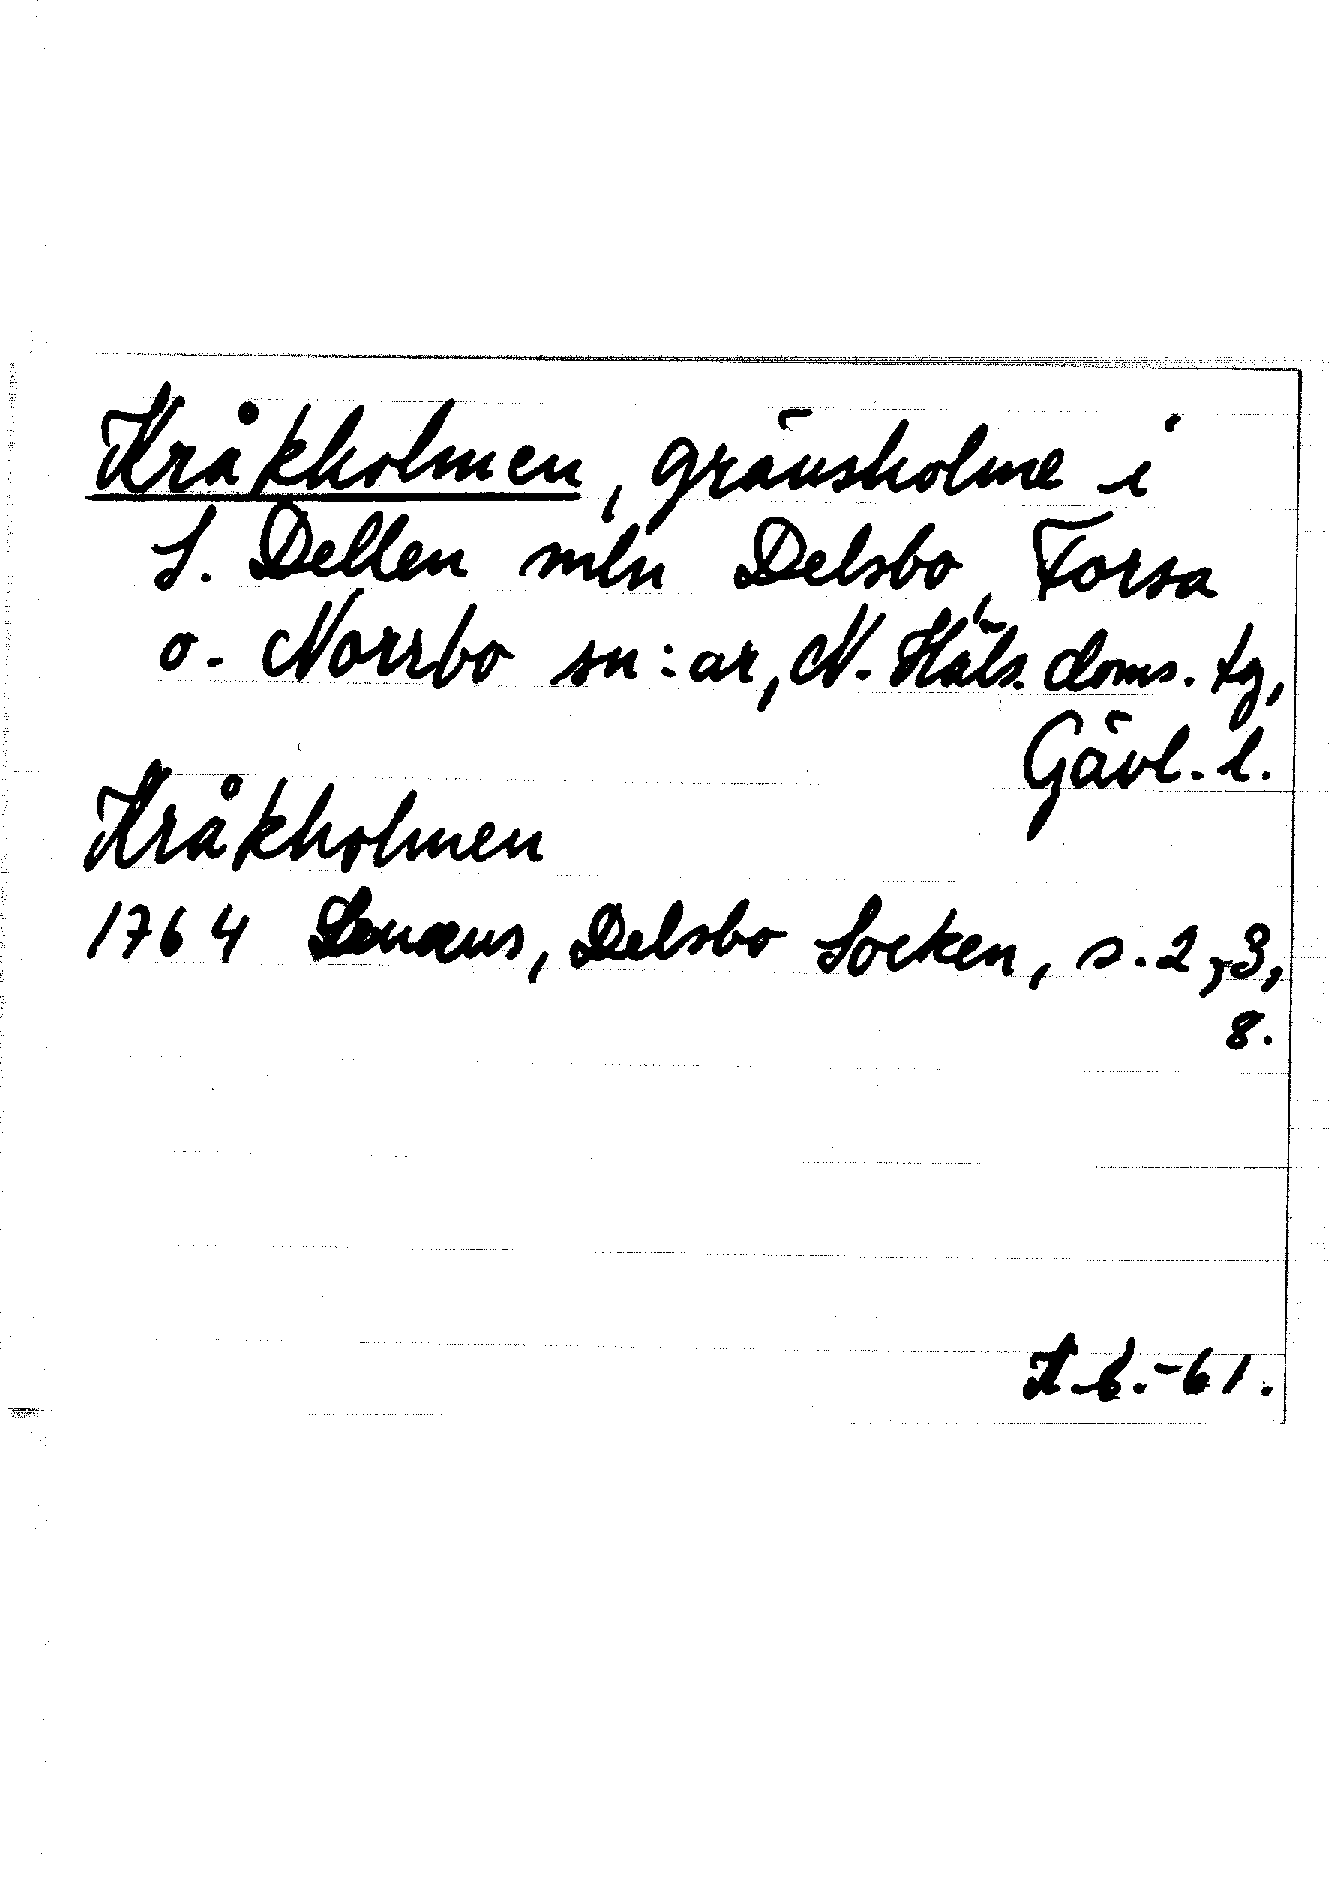 Kråkholmen, gränsholme i
S. Dellen mln Delsbo, Forsa
o. Norrbo sn:ar, N. Häls. doms. tg,
Gävl. l.
Kråkholmen
1764 Lenæus, Delsbo Socken, s. 2, 3,
8.
-61.